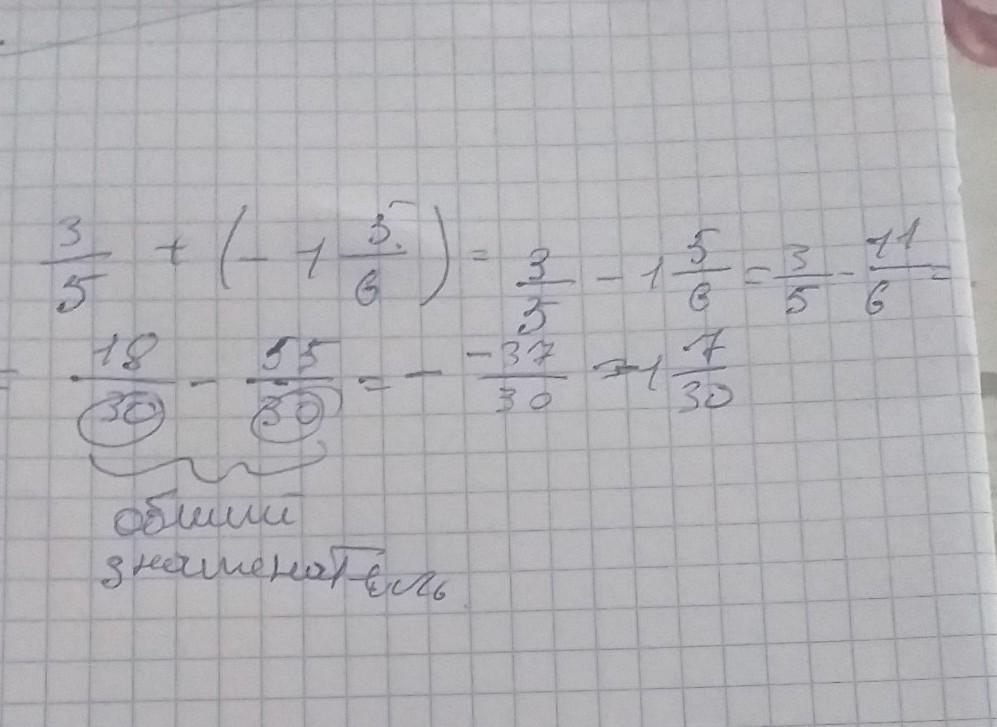 3/5 + (- 1 5/6) = 3/5 - 1 5/6 = 3/5 - 11/6 =
= 18/30 - 55/30 = - -37/30 = -1 7/30
общий
знаменатель